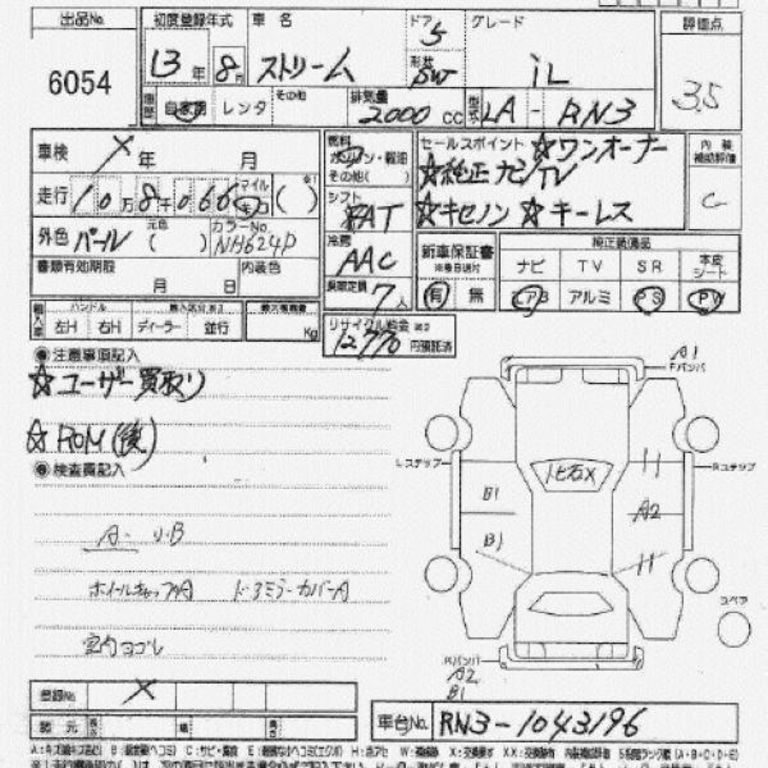 出品No. 初度登録年式 車名 ドア 5 グレード 評価点
6054 13年 8月 ストリーム 形状 SW iL 3.5
車歴 自家用 レンタ その他 排気量 2000 CC 型式 LA - RN3
車検 X 年 月
燃料 ガソリン・軽油 その他( )
セールスポイント ☆ワンオーナー
☆純正ナビ/TV
☆キセノン ☆キーレス
内装補助評価 C
走行 10万8千066 マイル キロ ( )
シフト FAT
外色 パール 元色 ( ) カラーNo. NH624P
冷房 AAC
書類有効期限 月 日 内装色
乗車定員 7人
新車保証書 有 無
純正装備品
ナビ TV SR 本皮シート
エアB アルミ PS PW
輸入車 ハンドル 左H 右H ディーラー 並行 最大積載量 Kg
リサイクル料金 12,770 円預託済
注意事項記入
☆ユーザー買取り
☆ROM(後)
検査員記入
A・U・B
ホイールキャップA ドアミラーカバーA
室内ヨゴレ
A1
Fバンパ
Lステップ Rステップ
飛石X
B1
A2
B1
スペア
Rバンパ
A2
B1
登録No. X
諸元 長さ 幅 高さ
車台No. RN3-1043196